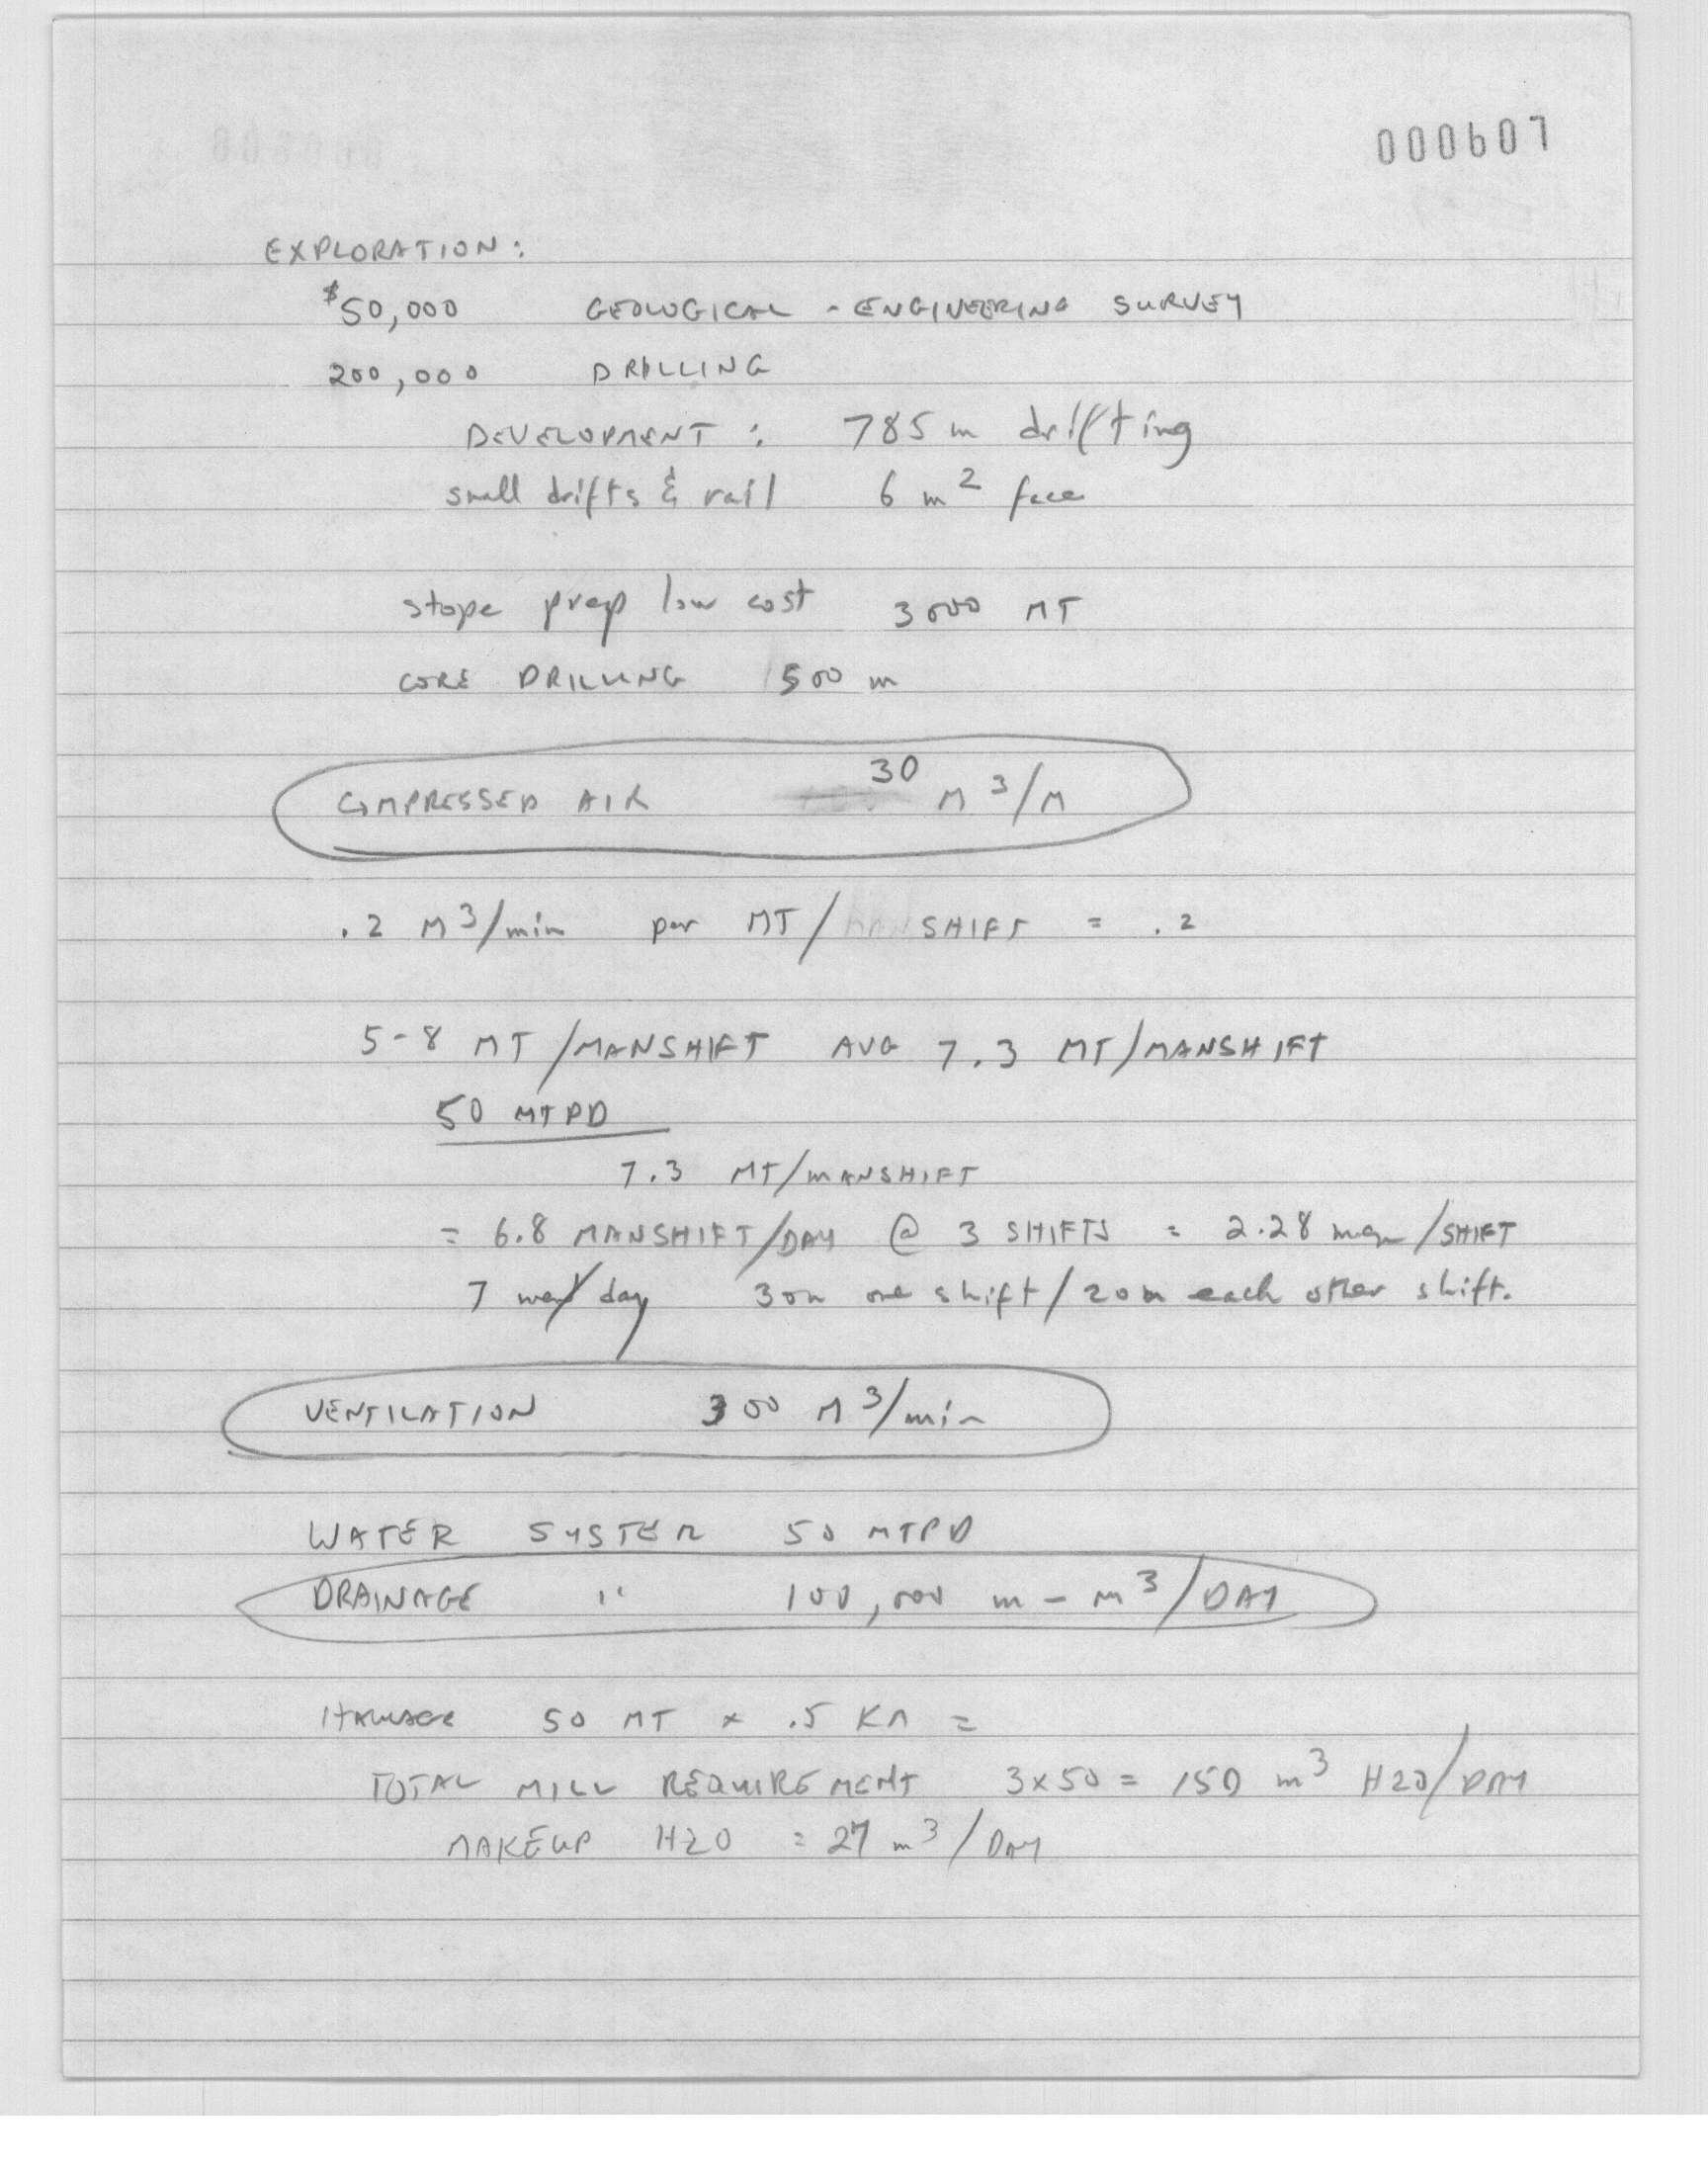 000607
EXPLORATION:
$50,000 GEOLOGICAL - ENGINEERING SURVEY
200,000 DRILLING
DEVELOPMENT: 785 m drifting
small drifts & rail 6 m2 face
stope prep low cost 3000 MT
CORE DRILLING 1500 m
COMPRESSED AIR 30 M3/M
.2 M3/min per MT/ SHIFT = .2
5-8 MT/MANSHIFT AVG 7.3 MT/MANSHIFT
50 MTPD
7.3 MT/MANSHIFT
= 6.8 MANSHIFT/DAY @ 3 SHIFTS = 2.28 men/SHIFT
7 men/day 3 on one shift/2 on each other shift.
VENTILATION 300 M3/min
WATER SYSTEM 50 MTPD
DRAINAGE " 100,000 m-m3/DAY
HAULAGE 50 MT x .5 KM =
TOTAL MILL REQUIREMENT 3x50 = 150 m3 H2O/DAY
MAKEUP H2O = 27 m3/DAY